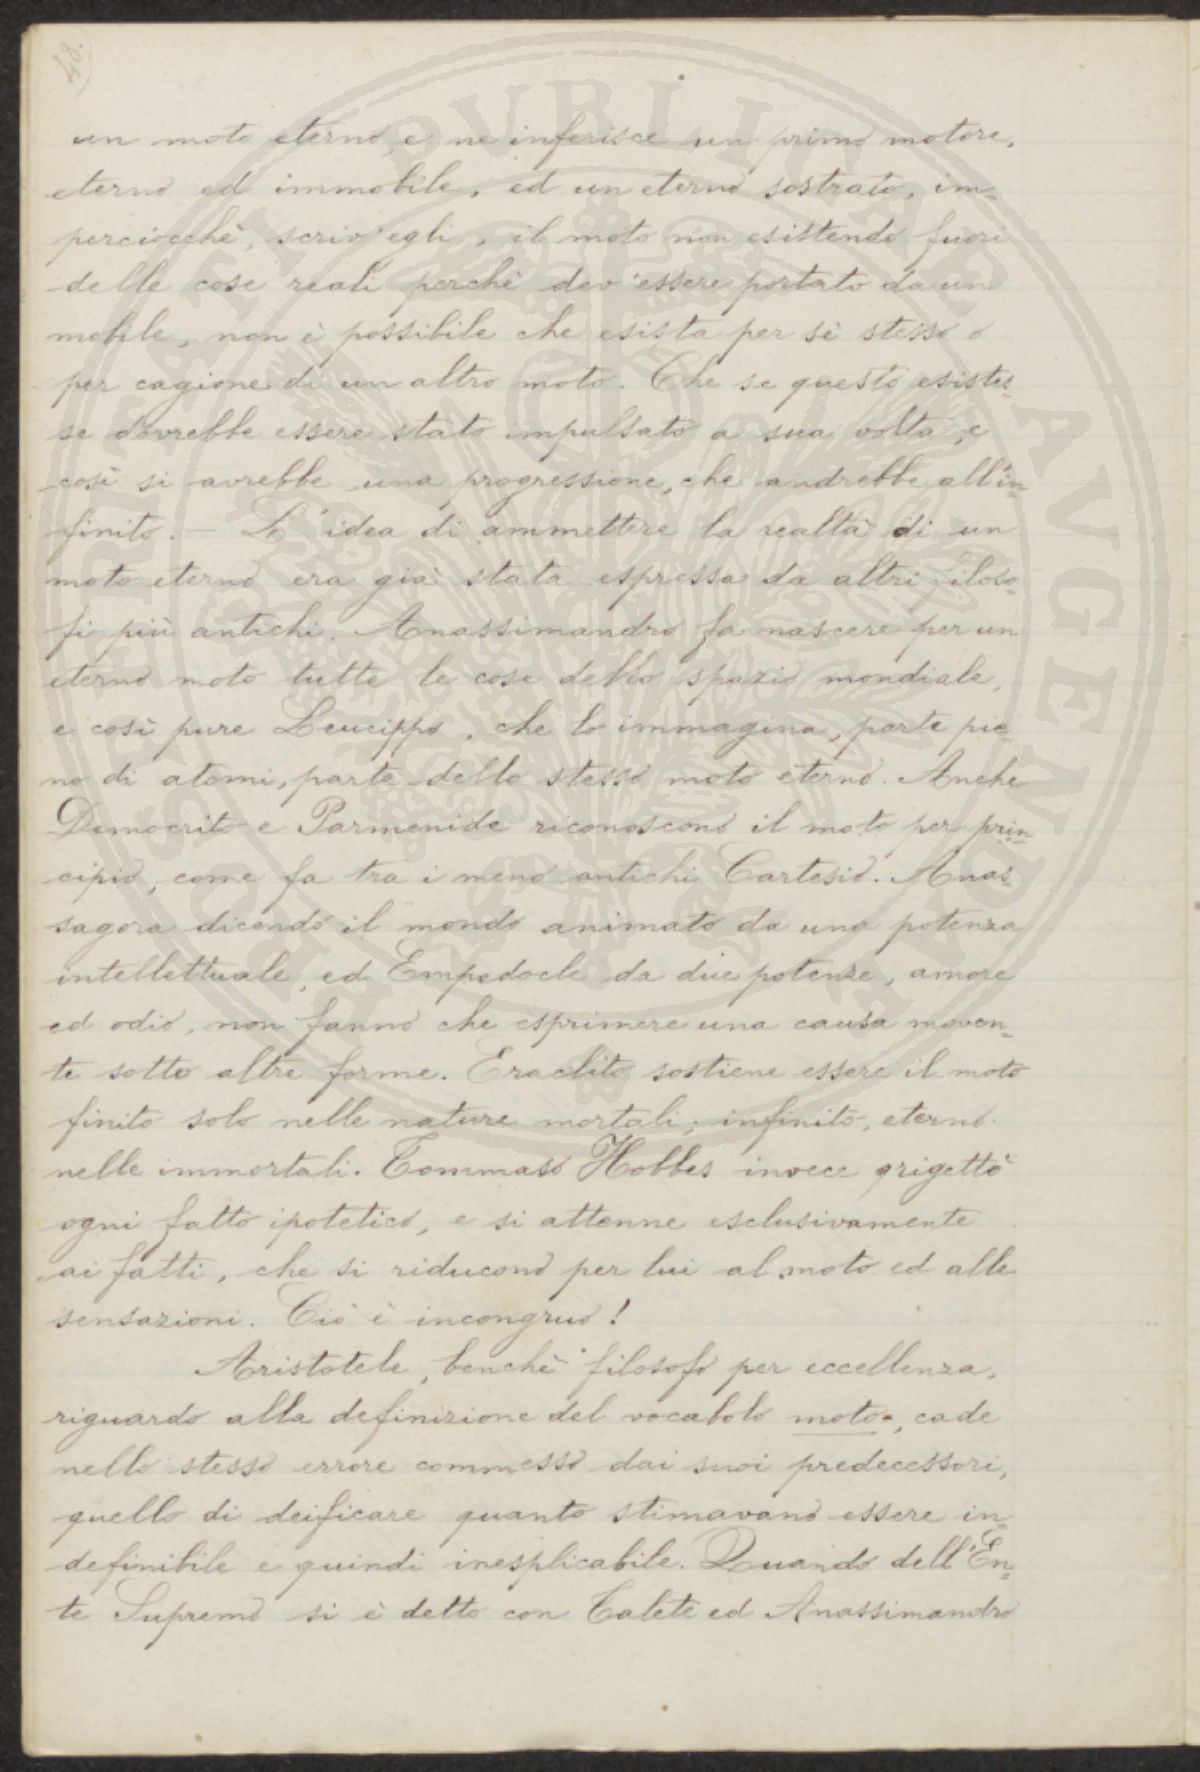 48.
un moto eterno, e ne inferisce un primo motore,
eterno ed immobile, ed un eterno sostrato, im-
perciocchè, scriv'egli, il moto non esistendo fuori
delle cose reali perchè dev'essere portato da un
mobile, non è possibile che esista per sè stesso o
per cagione di un altro moto. Che se questo esistes-
se dovrebbe essere stato impulsato a sua volta, e
così si avrebbe una progressione, che andrebbe all'in-
finito. — L'idea di ammettere la realtà di un
moto eterno era già stata espressa da altri filoso-
fi più antichi. Anassimandro fa nascere per un
eterno moto tutte le cose dello spazio mondiale,
e così pure Leucippo, che lo immagina, parte pie-
no di atomi, parte dello stesso moto eterno. Anche
Democrito e Parmenide riconoscono il moto per prin-
cipio, come fa tra i meno antichi Cartesio. Anas-
sagora dicendo il mondo animato da una potenza
intellettuale, ed Empedocle da due potenze, amore
ed odio, non fanno che esprimere una causa moven-
te sotto altre forme. Eraclito sostiene essere il moto
finito solo nelle nature mortali; infinito, eterno
nelle immortali. Tommaso Hobbes invece rigettò
ogni fatto ipotetico, e si attenne esclusivamente
ai fatti, che si riducono per lui al moto ed alle
sensazioni. Ciò è incongruo!
Aristotele, benchè filosofo per eccellenza,
riguardo alla definizione del vocabolo moto, cade
nello stesso errore commesso dai suoi predecessori,
quello di deificare quanto stimavano essere in-
definibile e quindi inesplicabile. Quando dell'En-
te Supremo si è detto con Talete ed Anassimandro